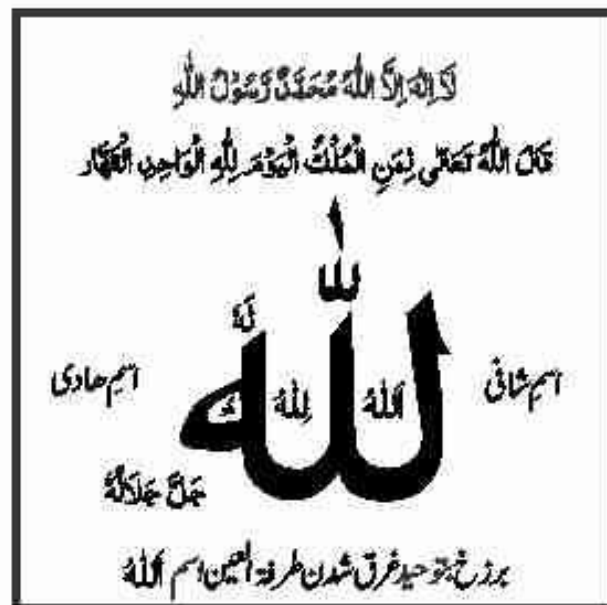 لَا اِلٰهَ اِلَّا اللّٰهُ مُحَمَّدٌ رَّسُوْلُ اللّٰهِ
قَالَ اللّٰهُ تَعَالٰى لِمَنِ الْمُلْكُ الْيَوْمَ لِلّٰهِ الْوَاحِدِ الْقَهَّار
لله
لَهُ
اسمِ شافی اَللّٰهُ لِلّٰهُ هُ اسمِ هادی
جَلَّ جَلَالُهٗ
برزخ بتوحید غرق شدن طرفة العین اسم اَللّٰهُ